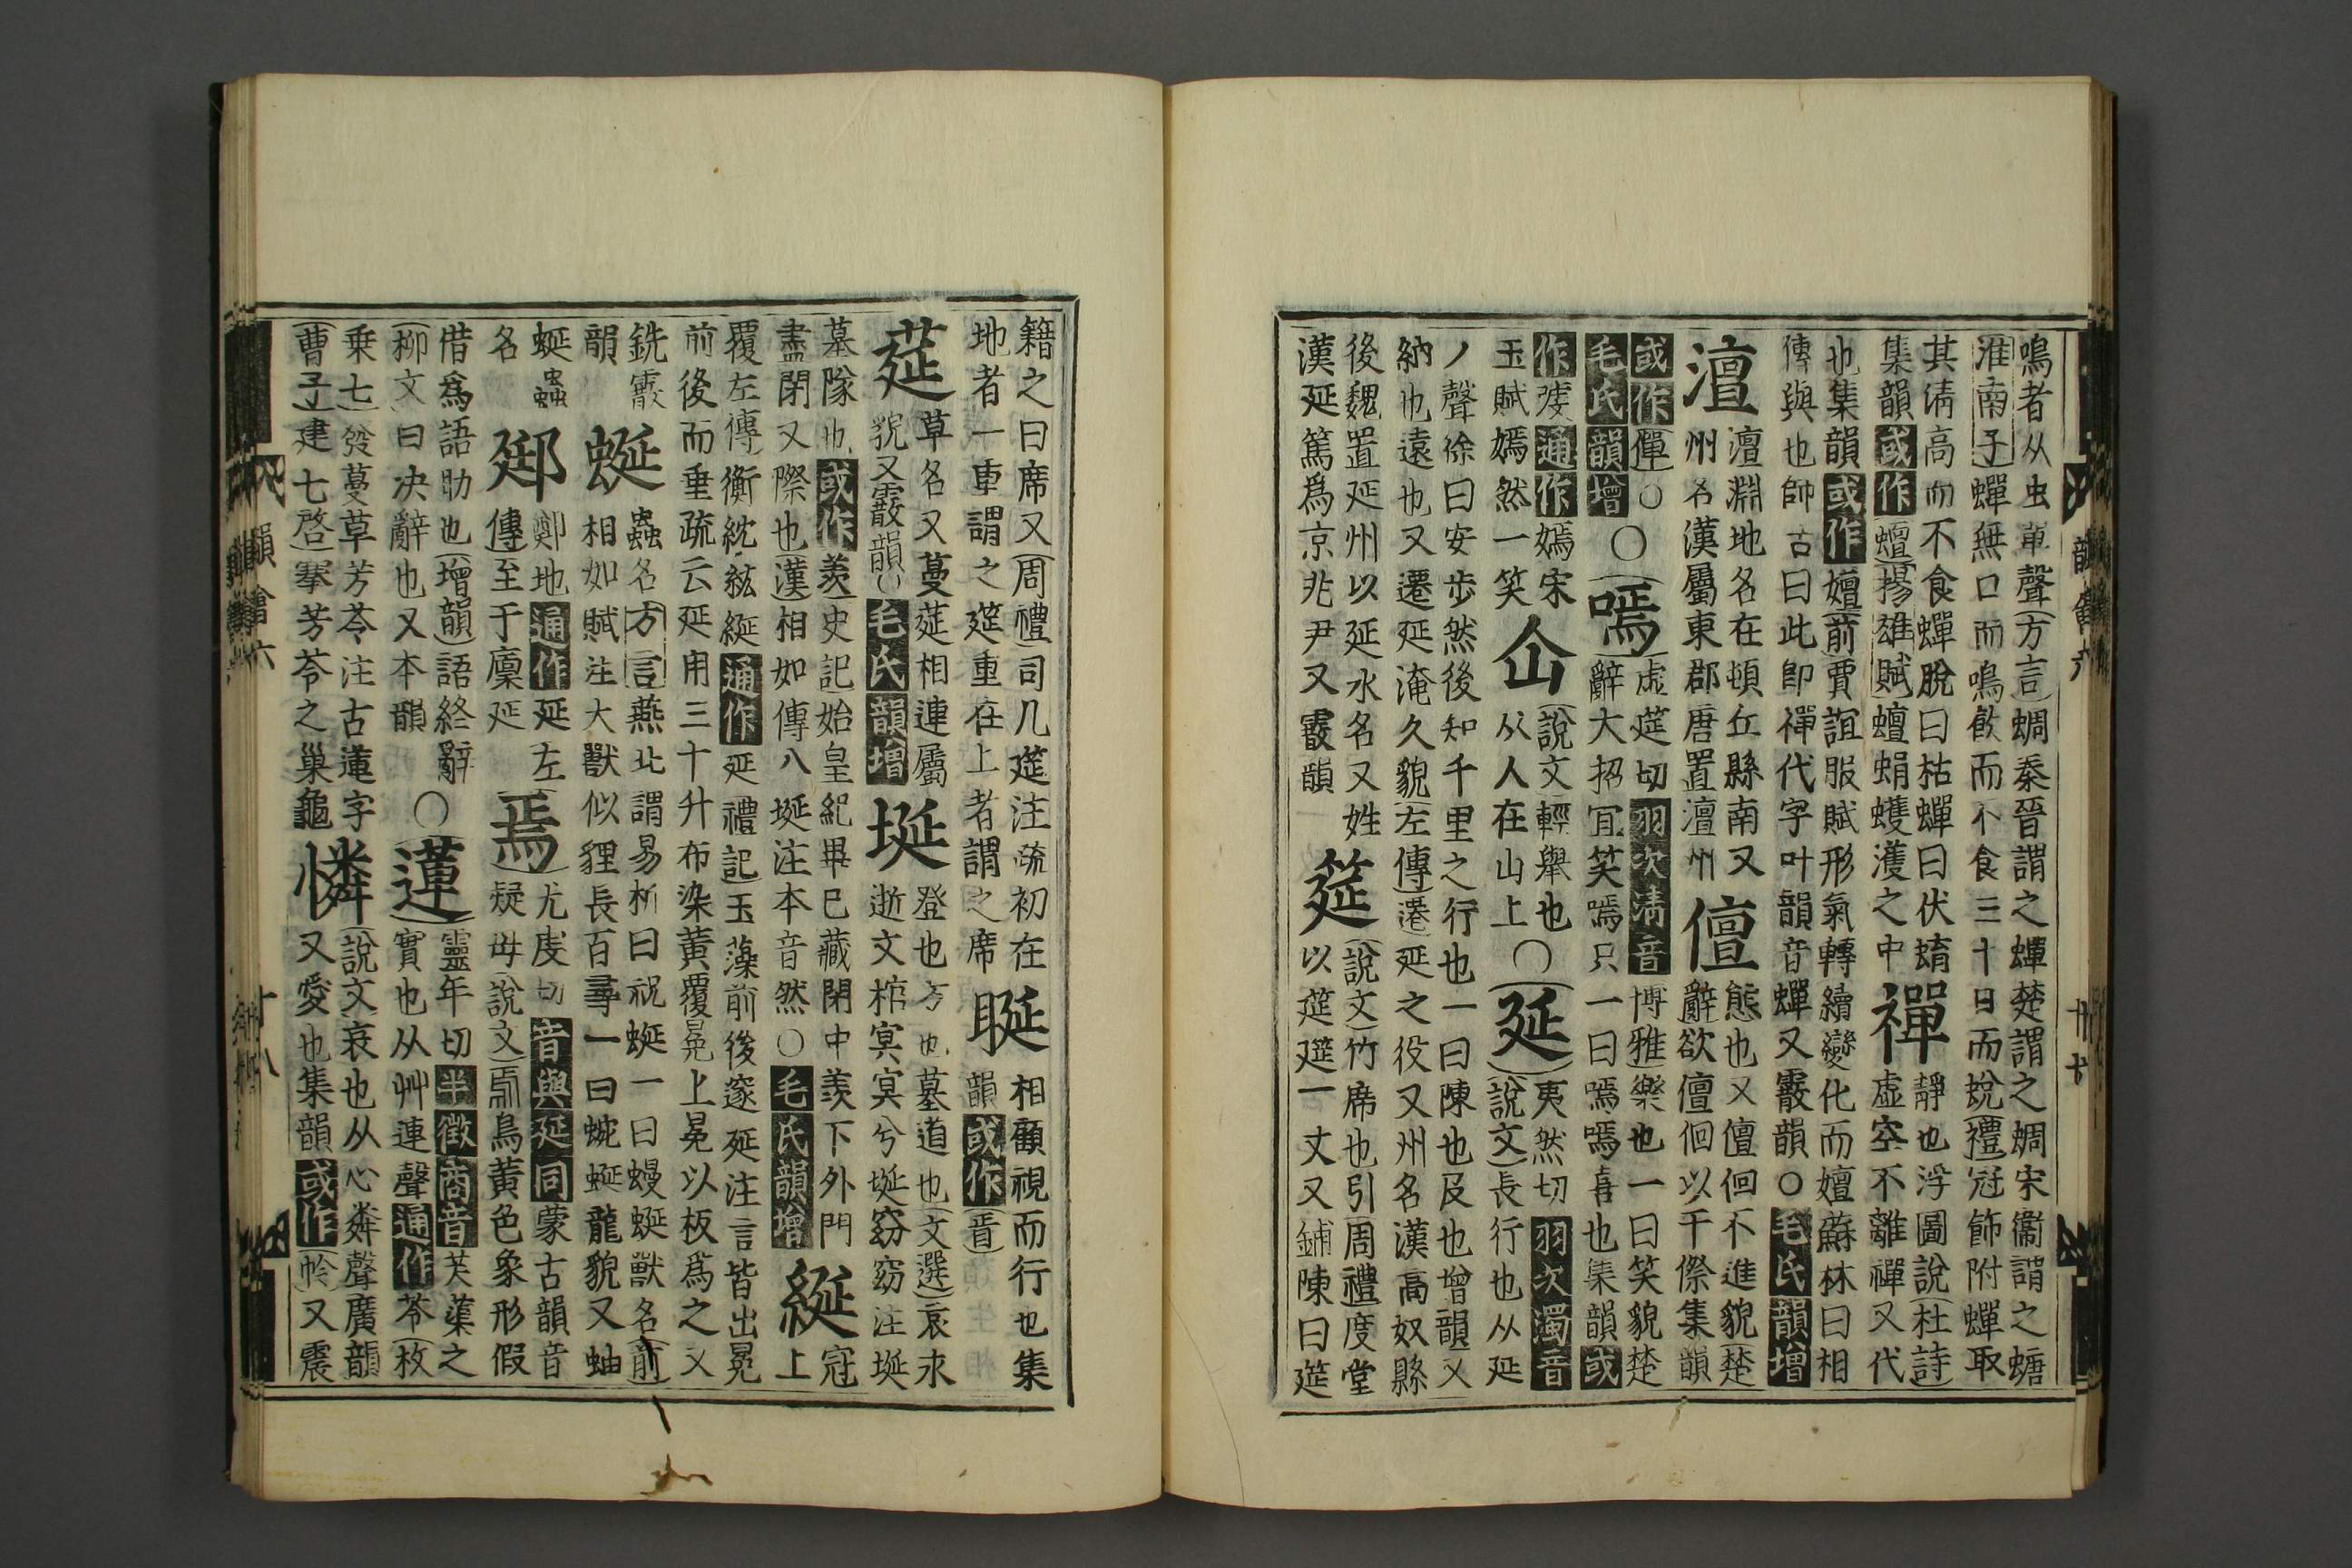 鳴者从虫單聲方言蜩秦晉謂之蟬楚謂之蜩宋衞謂之螗
淮南子蟬無口而鳴飲而不食三十日而蛻禮冠飾附蟬取
其淸高而不食蟬脫曰枯蟬曰伏蜟
集韻或作蟺揚雄賦蟺蜎蠖濩之中
禪
靜也浮圖說杜詩
虛空不離禪又代
也集韻或作嬗前賈誼服賦形氣轉續變化而嬗蘇林曰相
傳與也師古曰此卽禪代字叶韻音蟬又霰韻○毛氏韻增
澶
澶淵地名在頓丘縣南又
州名漢屬東郡唐置澶州
儃
態也又儃佪不進貌楚
辭欲儃佪以干傺集韻
或作僤○
毛氏韻增
○嘕
虛延切羽次淸音博雅樂也一曰笑貌楚
辭大招宜笑嘕只一曰嘕嘕喜也集韻或
作㦍通作嫣宋
玉賦嫣然一笑
仚
說文輕舉也
从人在山上
○延
夷然切羽次濁音
說文長行也从延
丿聲徐曰安步然後知千里之行也一曰陳也及也增韻又
納也遠也又遷延淹久貌左傳遷延之役又州名漢高奴縣
後魏置延州以延水名又姓
漢延篤爲京兆尹又霰韻
筵
說文竹席也引周禮度堂
以筵筵一丈又鋪陳曰筵
籍之曰席又周禮司几筵注疏初在
地者一重謂之筵重在上者謂之席
䀽
相顧視而行也集
韻或作
莚
草名又蔓莚相連屬
貌又霰韻毛氏韻增
埏
登也方也墓道也文選哀永
逝文棺冥冥兮埏窈窈注埏
墓隊也或作羨史記始皇紀畢已藏閉中羨下外門
盡閉又際也漢相如傳八埏注本音然○毛氏韻增
綖
冠
上
覆左傳衡紞紘綖通作延禮記玉藻前後邃延注言皆出冕
前後而垂疏云延用三十升布染黃覆冕上冕以板爲之又
銑霰
韻
蜒
蟲名方言燕北謂易析曰祝蜒一曰蟃蜒獸名前
相如賦注大獸似貍長百尋一曰蜿蜒龍貌又蚰
蜒蟲
名
郔
鄭地通作延左
傳至于廩延
焉
尤虔切音與延同蒙古韻音
疑母說文焉鳥黃色象形假
借爲語助也增韻語終辭
柳文曰决辭也又本韻
○蓮
靈年切半徵商音芙蕖之
實也从艸連聲通作苓枚
乗七發蔓草芳苓注古蓮字
曹子建七啓搴芳苓之巢龜
憐
說文哀也从心粦聲廣韻
又愛也集韻或作怜又震
韻會六
十八